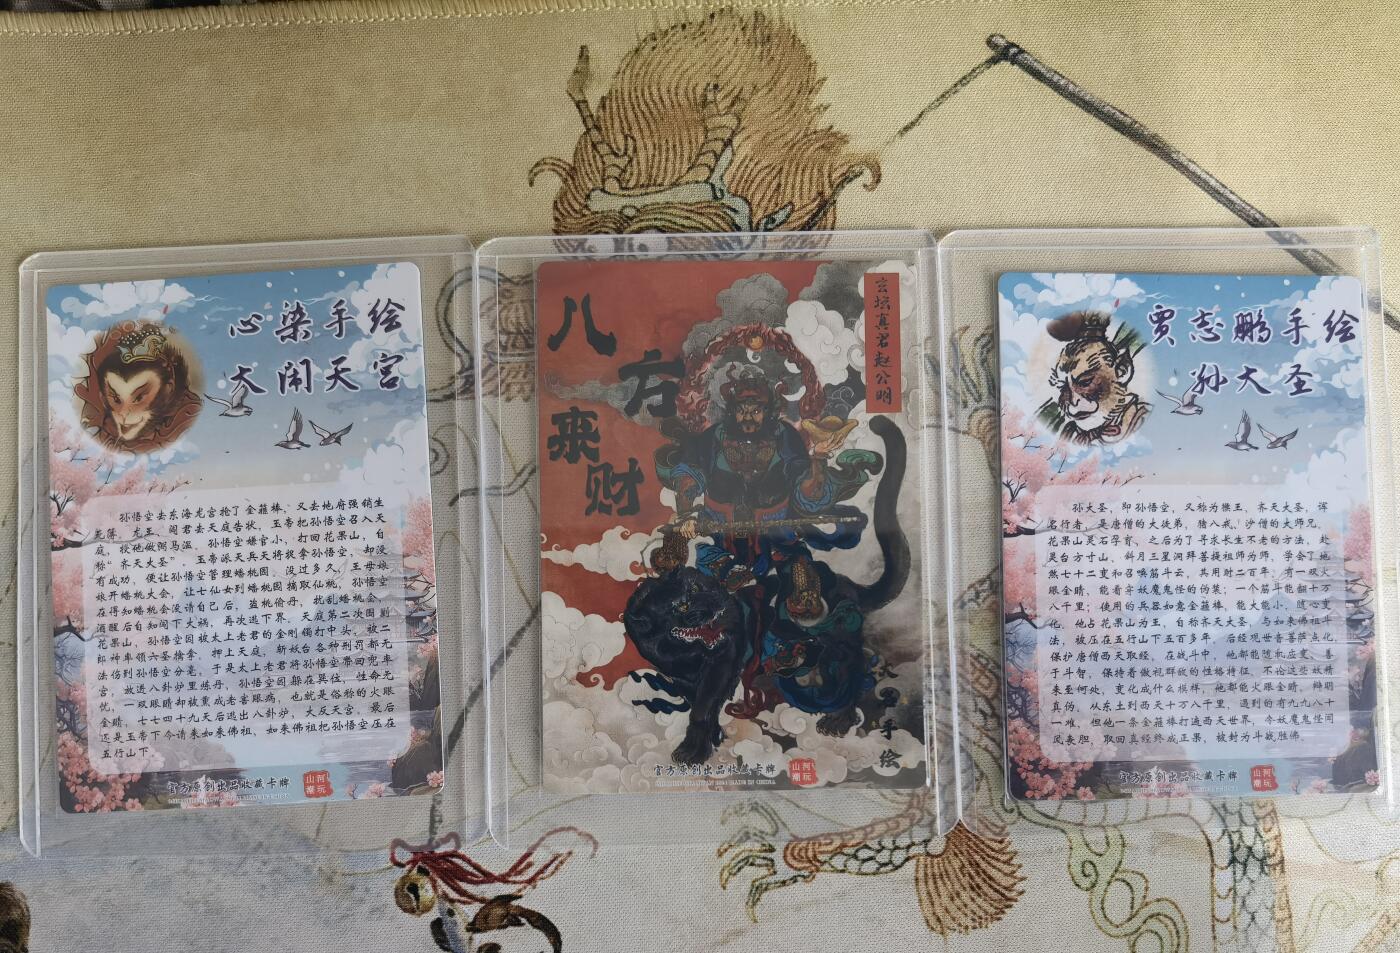 心染手绘
大闹天宫
孙悟空去东海龙宫抢了金箍棒，又去地府强销生
死簿。龙王、阎君去天庭告状，玉帝把孙悟空召入天
庭，授他做弼马温。孙悟空嫌官小，打回花果山，自
称“齐天大圣”。玉帝派天兵天将捉拿孙悟空，却没
有成功，便让孙悟空管理蟠桃园。没过多久，王母娘
娘开蟠桃大会，让七仙女到蟠桃园摘取仙桃，孙悟空
在得知蟠桃会没请自己后，盗桃偷丹，扰乱蟠桃会，
酒醒后自知闯下大祸，再次逃下界。天庭第二次围剿
花果山，孙悟空因被太上老君的金刚镯打中头，被二
郎神率领六圣擒拿，押上天庭，斩妖台各种刑罚都无
法伤到孙悟空分毫，于是太上老君将孙悟空带回兜率
宫，放进八卦炉里炼丹，孙悟空因躲在巽位，性命无
忧，一双眼睛却被熏成老害眼病，也就是俗称的火眼
金睛，七七四十九天后逃出八卦炉，大反天宫，最后
还是玉帝下令请来如来佛祖，如来佛祖把孙悟空压在
五行山下。
官方原创出品收藏卡牌
山河
潮玩
八方
来财
玄坛真君赵公明
大宫手绘
官方原创出品收藏卡牌
山河
潮玩
贾志鹏手绘
孙大圣
孙大圣，即孙悟空，又称为猴王、齐天大圣，诨
名行者，是唐僧的大徒弟，猪八戒、沙僧的大师兄。
花果山灵石孕育，之后为了寻求长生不老的方法，赴
灵台方寸山，斜月三星洞拜菩提祖师为师，学会了地
煞七十二变和召唤筋斗云，其用时二百年；有一双火
眼金睛，能看穿妖魔鬼怪的伪装；一个筋斗能翻十万
八千里；使用的兵器如意金箍棒，能大能小，随心变
化，他占花果山为王，自称齐天大圣，与如来佛祖斗
法，被压在五行山下五百多年，后经观世音菩萨点化，
保护唐僧西天取经，在战斗中，他都能随机应变、善
于斗智，保持着傲视群敌的性格特征，不论这些妖精
来至何处，变化成什么模样，他都能火眼金睛，辩明
真伪，从东土到西天十万八千里，遇到的有九九八十
一难，但他一条金箍棒打遍西天世界，令妖魔鬼怪闻
风丧胆，取回真经终成正果，被封为斗战胜佛。
官方原创出品收藏卡牌
山河
潮玩